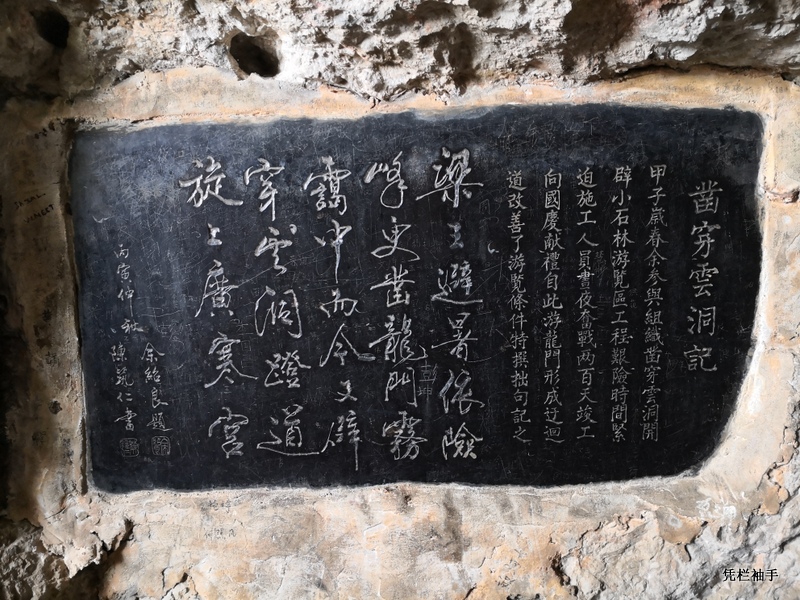 凿穿雲洞記
甲子歲春余参與組織凿穿雲洞開
辟小石林游覽區工程艱險時間緊
迫施工人員晝夜奮戰两百天竣工
向國慶献禮自此游龍門形成迂迴
道改善了游覽條件特撰拙句記之
梁王避暑依險
峰更凿龍門霧
靄中而今又辟
穿雲洞蹬道
旋上廣寒宫
丙寅仲秋
余紹良題
陳筑仁書
凭栏袖手